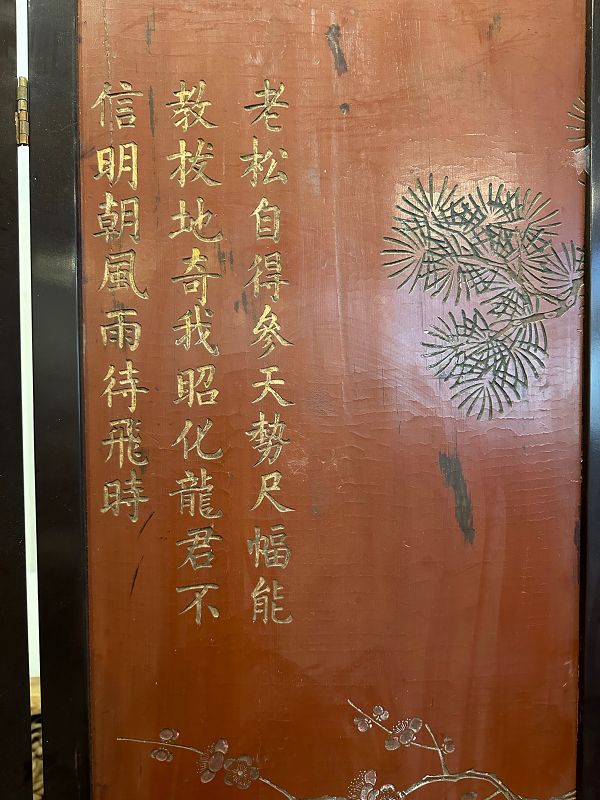 老松自得參天勢尺幅能
教拔地奇我昭化龍君不
信明朝風雨待飛時